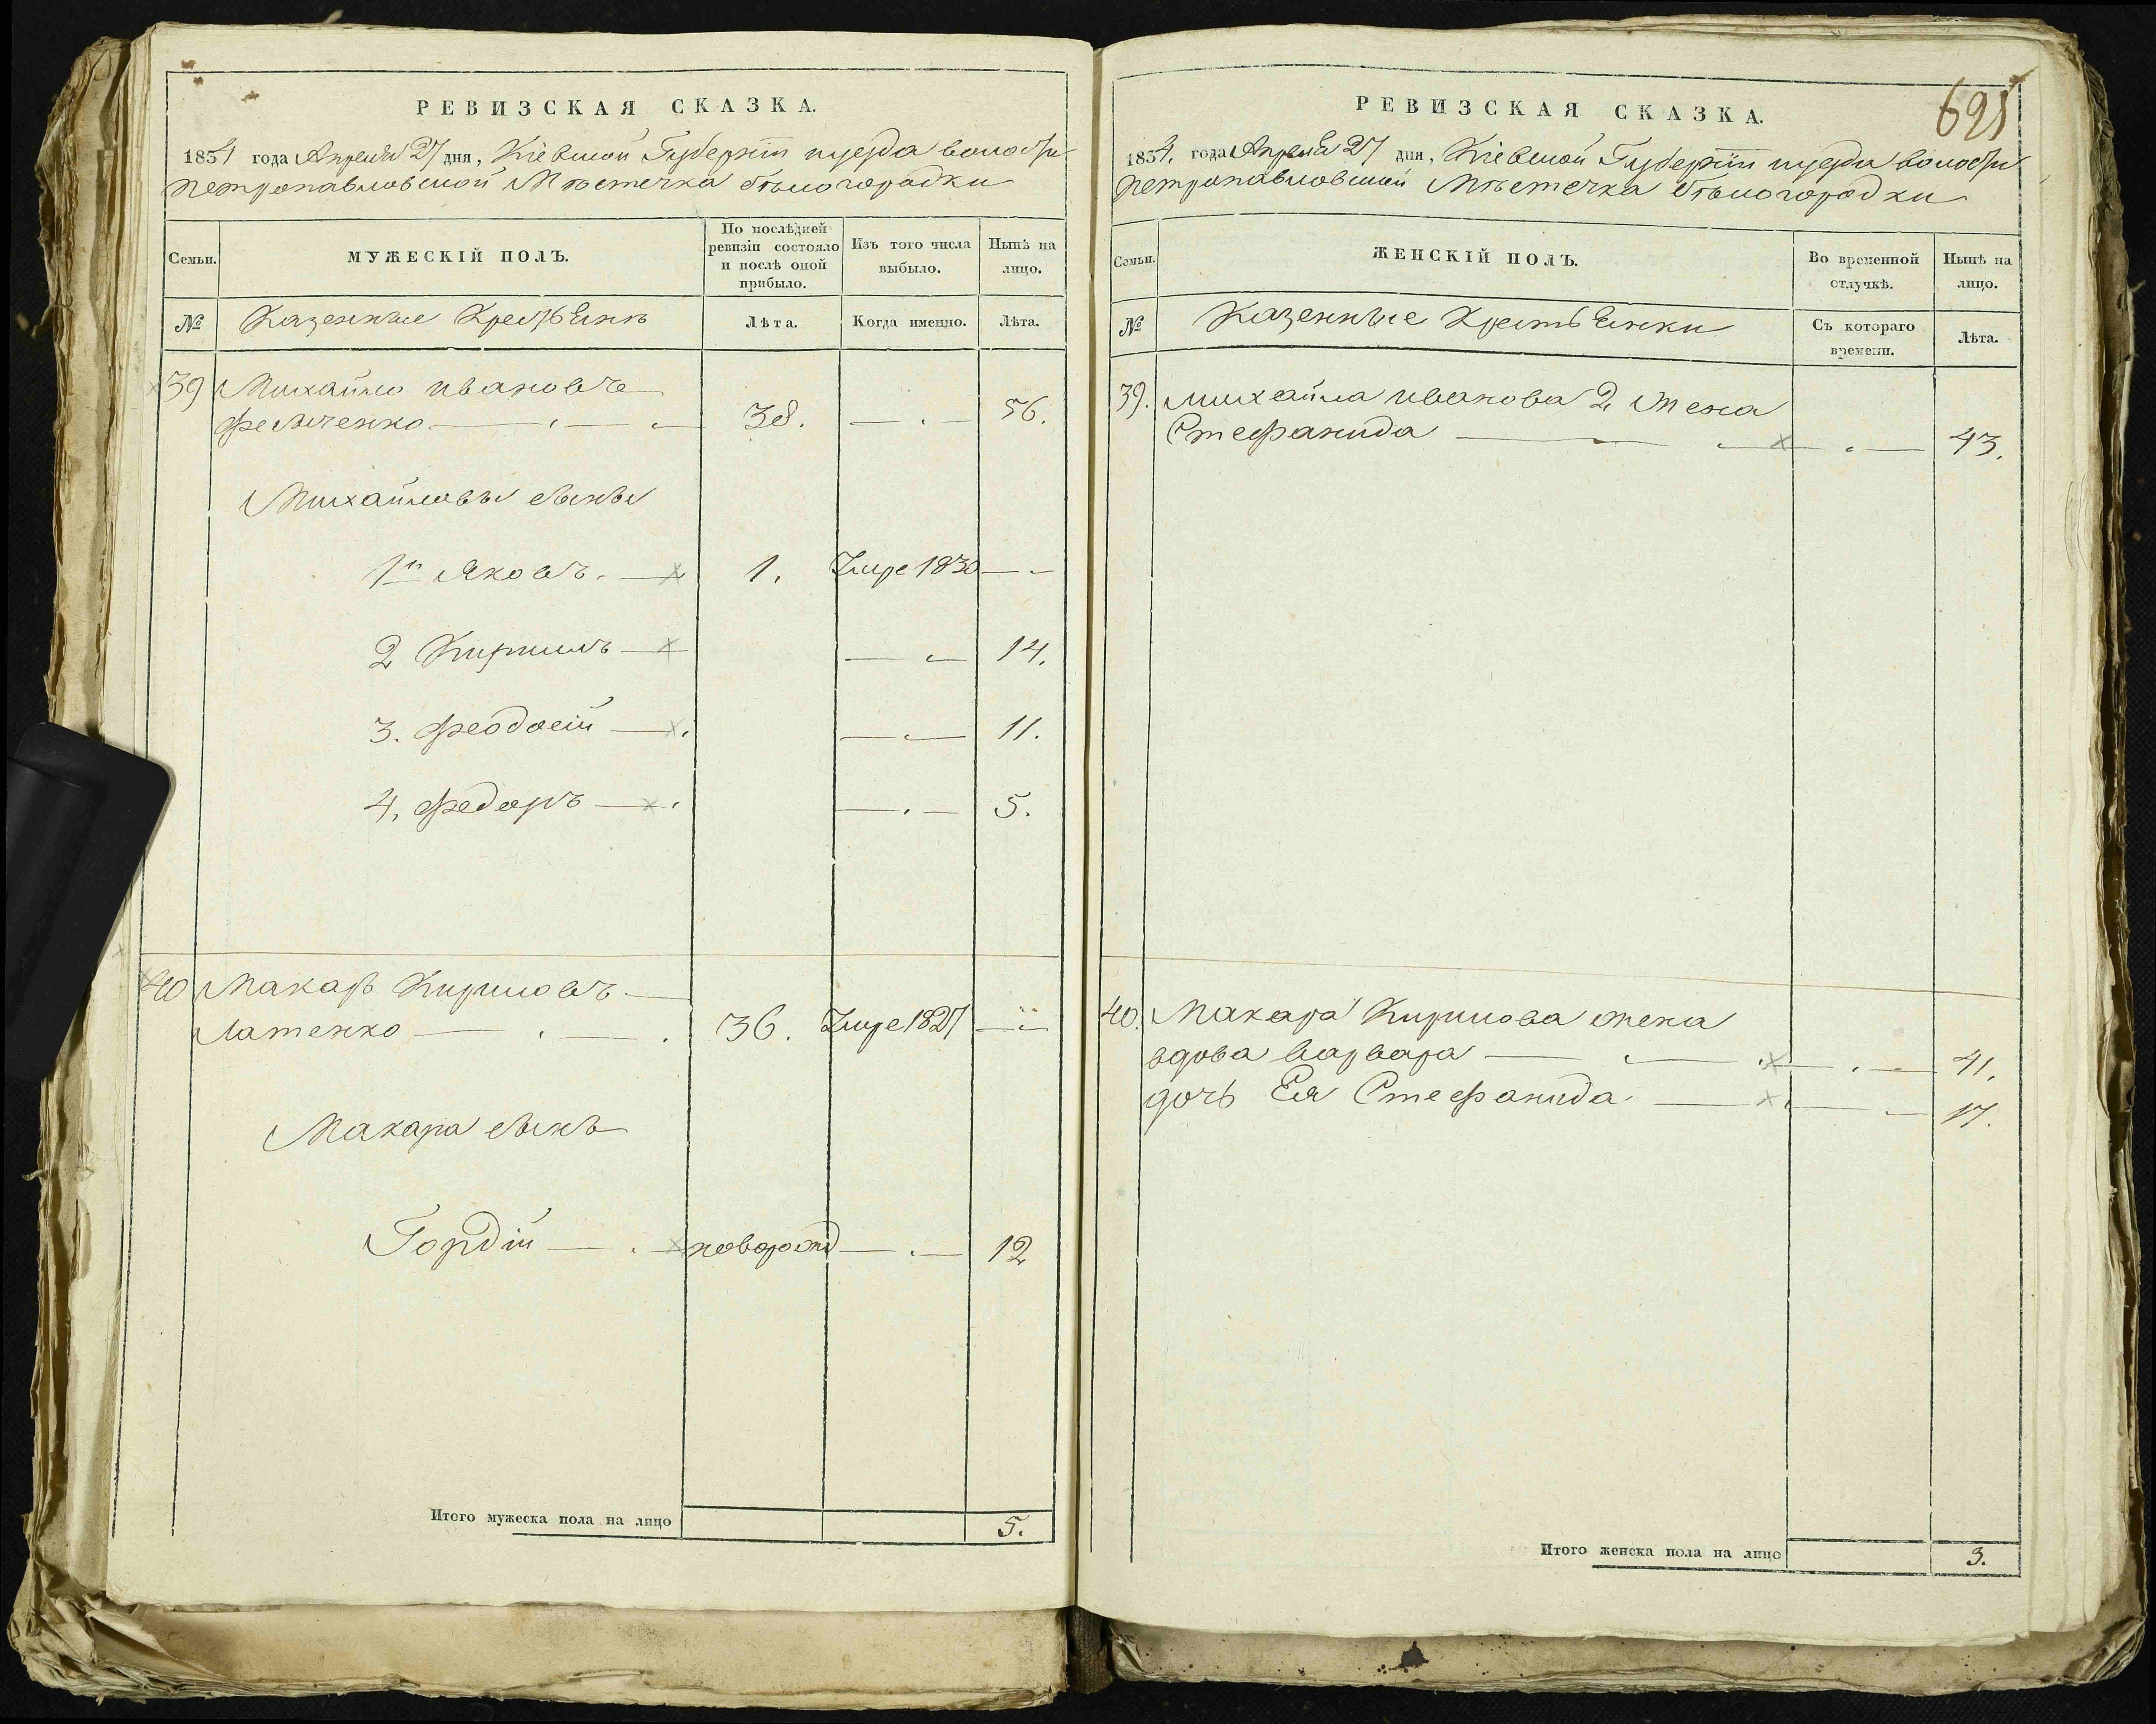 РЕВИЗСКАЯ СКАЗКА.
1834 года Апреля 27 дня, Кіевской Губерніи уезда волости
петропавловской Мѣстечка бѣлогородки
Семьи.
МУЖЕСКІЙ ПОЛЪ.
По послѣдней ревизіи состояло и послѣ оной прибыло.
Изъ того числа выбыло.
Нынѣ на лицо.
№ Казенные Крестьяне Лѣта. Когда именно. Лѣта.
39 Михайло ивановъ
38. 56.
Михайловы сыны
1й Яковъ. 1. Умре 1830
2 Кирилъ 14.
3. Феодосій 11.
4. Федоръ 5.
40 Макаръ Кириловъ
Латенко 36. Умре 1827
Макара сынъ
Гордій новорожд 12
Итого мужеска пола на лицо 5.
695
РЕВИЗСКАЯ СКАЗКА.
1834. года Апреля 27 дня, Кіевской Губерніи уезда волости
петропавловской Мѣстечка бѣлогородки
Семьи.
ЖЕНСКІЙ ПОЛЪ.
Во временной отлучкѣ.
Нынѣ на лицо.
№ Казенные Крестьянки Съ котораго времени. Лѣта.
39. михайла иванова 2 жена
Стефанида 43.
40. Макара Кирилова жена
вдова варвара 41.
дочь Ея Стефанида. 17.
Итого женска пола на лицо 3.